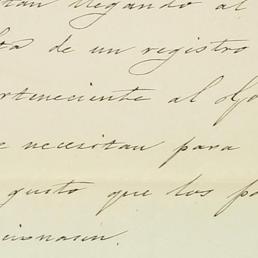 tan llegando al
de un registro
rteneciente al
necesitan para
gusto que los